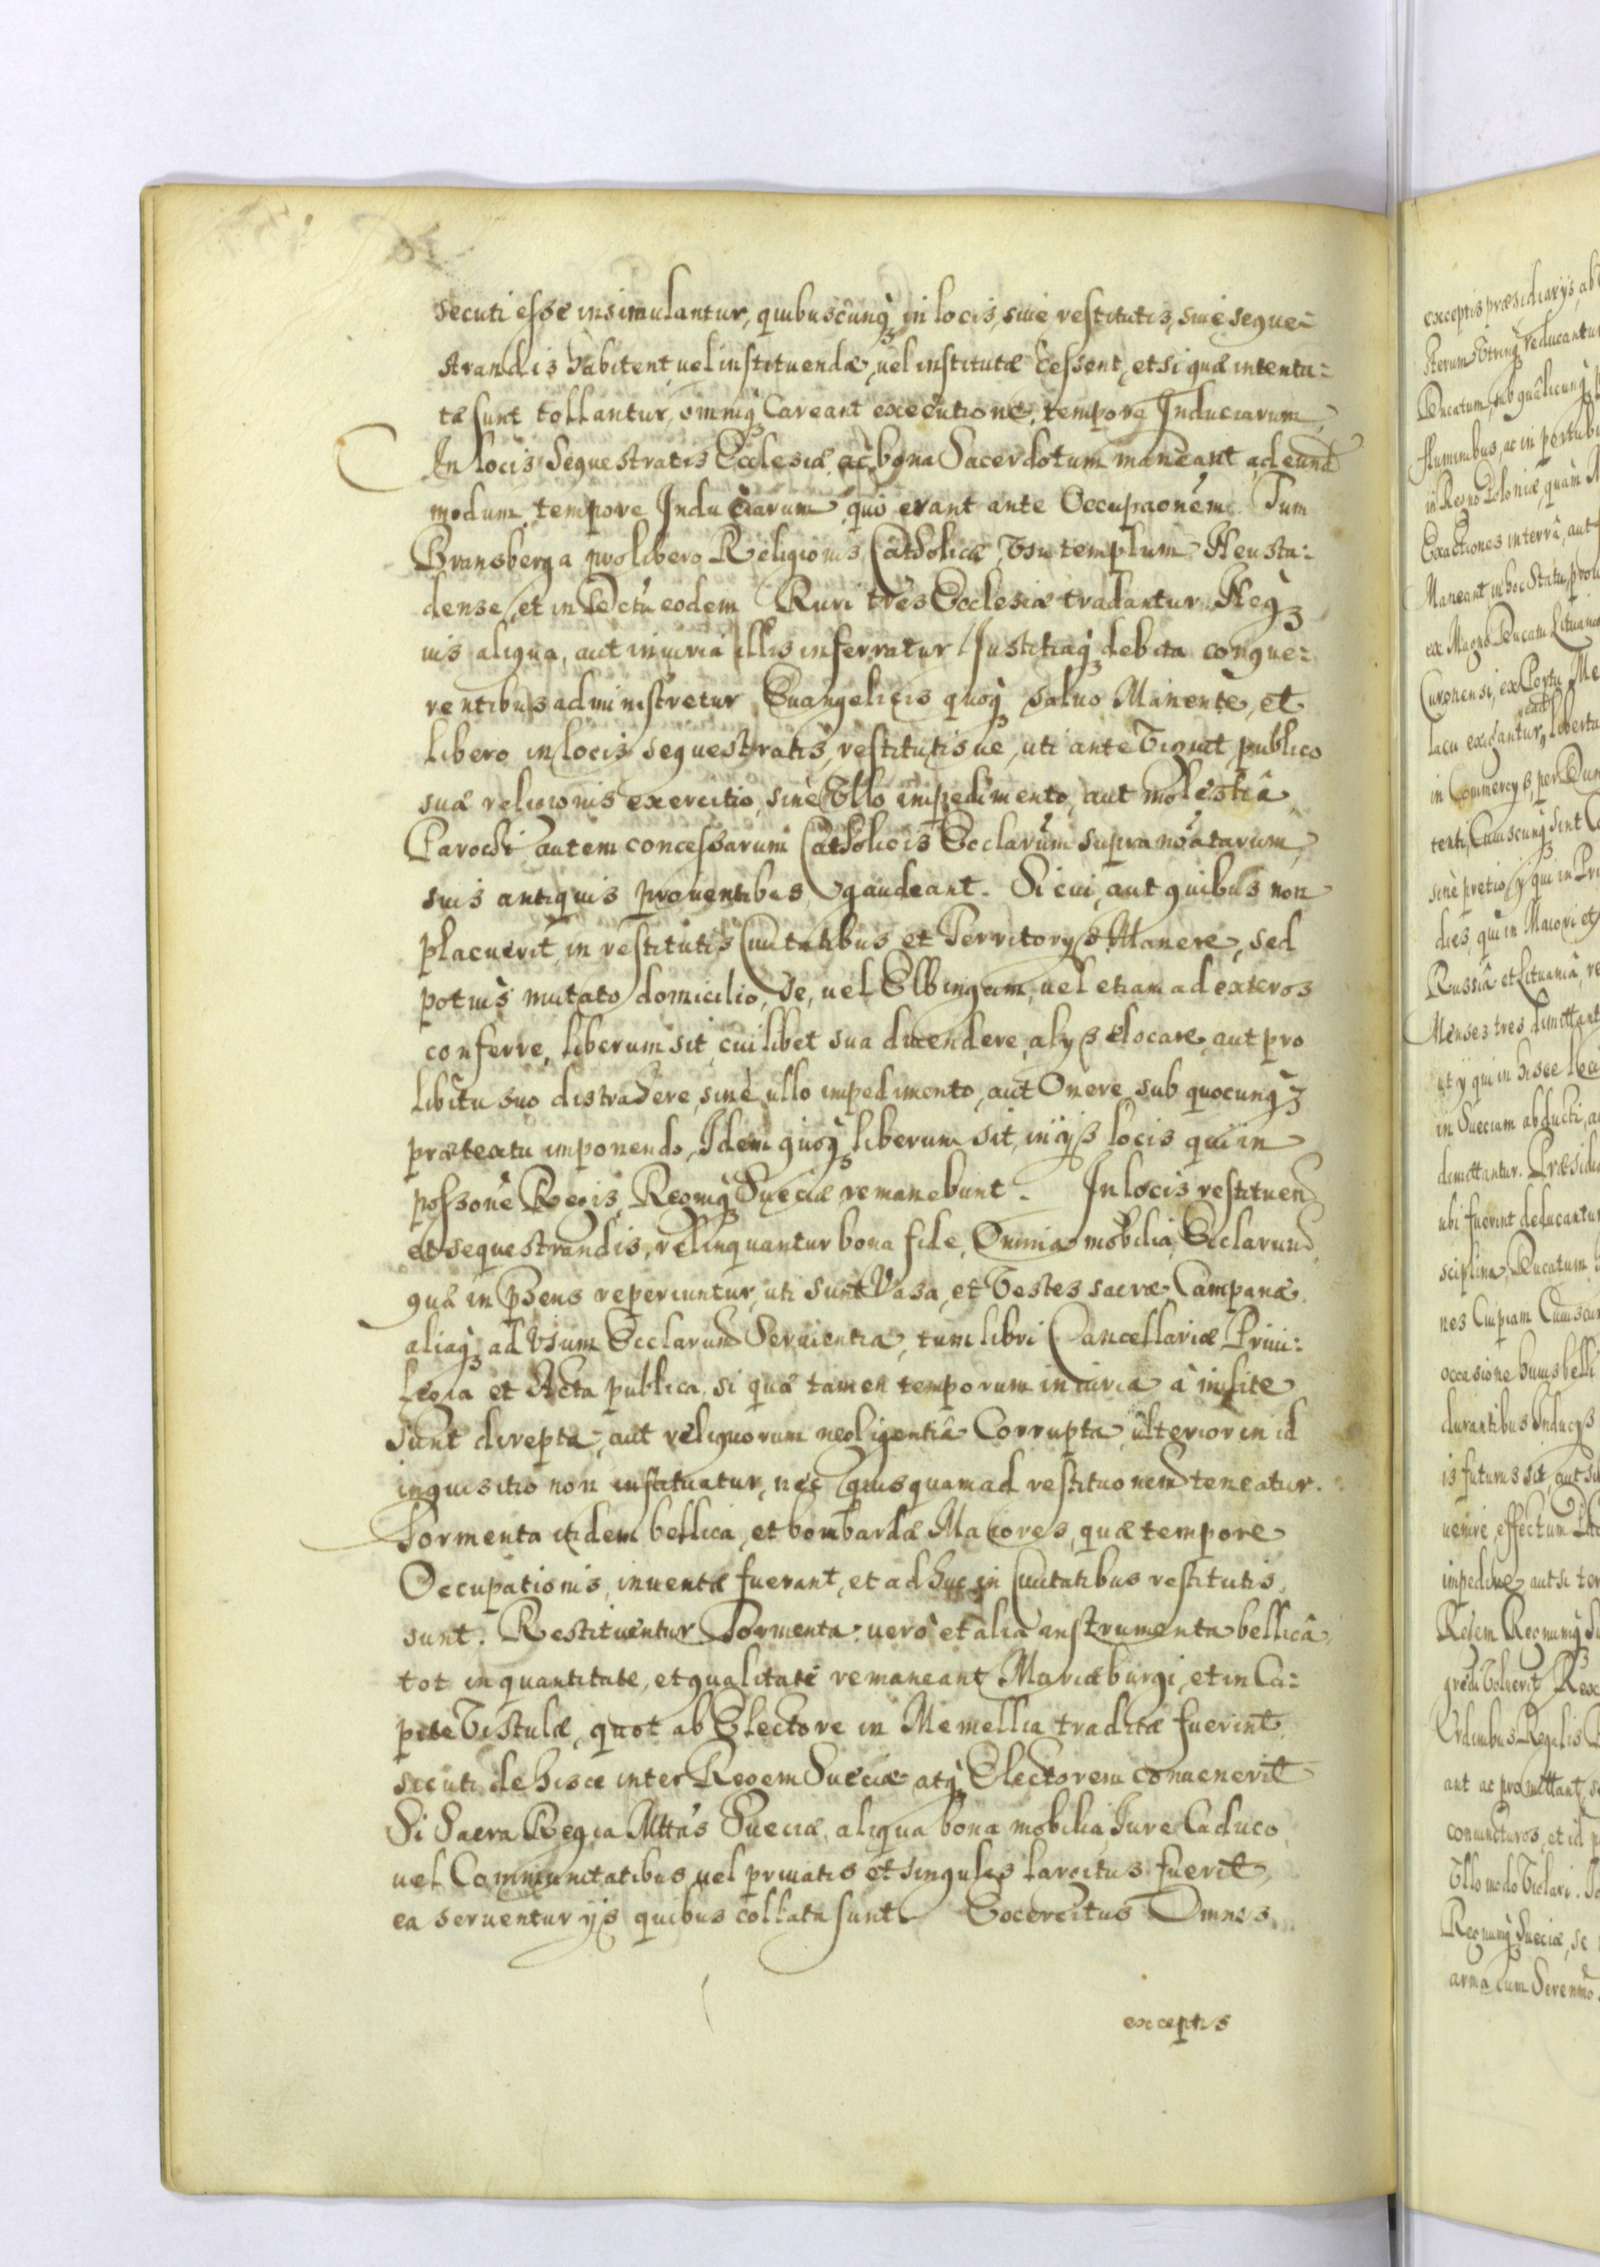 secuti esse insimulantur, quibuscunq; in locis, siue restitutis, siue seque-
strandis habitent, uel instituendæ, uel institutæ cessent, et si quæ intenta-
tæ sunt tollantur, omniq; careant executione, tempore Induciarum.
In locis sequestratis Ecclesiæ, ac bona Sacerdotum maneant, ad eund
modum, tempore Induciarum, quo erant ante Occupaonem. Tum
Bransberga pro libero Religionis Catholicæ Vsu templum Neusta-
dense, et in eodem Ruri tres Ecclesiæ tradantur. Neq;
uis aliqua, aut iniuria illis inferratur Justitiaq; debita conque-
rentibus administretur, Euangelicis quoq; saluo Manente, et
libero in locis sequestratis, restitutisue, uti ante Viguit, publico
suæ religionis exercitio, sine Vllo impedimento, aut molestiâ.
Parochi autem concessarum Catholicis Ecclarum supra notatarum,
suis antiquis prouentibus gaudeant. Si cui, aut quibus non
placuerit, in restitutis Ciuitatibus et Territorys Manere, sed
potius mutato domicilio, se, uel Elbingam, uel etiam ad exteros
conferre, liberum sit, cuilibet sua diuendere, alys elocare, aut pro
libitu suo distrahere, sine ullo impedimento, aut Onere, sub quocunq;
prætextu imponendo, Idem quoq; liberum sit, in ijs locis qui in
possone Regis, Regniq; Sueciæ remanebunt. In locis restituen
et sequestrandis, relinquantur bona fide, Omnia mobilia, Ecclarum
quæ in psens reperiuntur, uti sunt Vasa, et Vestes sacræ, Campanæ,
aliaq; ad Vsum Ecclarum Seruientia, tum libri Cancellariæ Priui-
legia et Acta publica, si quæ tamen temporum iniuria à milite
sunt direpta, aut reliquorum negligentiâ Corrupta, ulterior in id
inquisitio non instituatur, nec quisquam ad restituonem teneatur.
Tormenta itidem bellica, et bombardæ Maiores, quæ tempore
Occupationis, inuentæ fuerant, et ad huc in Ciuitatibus restitutis
sunt. Restituentur Tormenta uerò et alia instrumenta bellicâ,
tot in quantitate, et qualitate remaneant Mariæburgi, et in Ca-
pite Vistulæ, quot ab Electore in Memellia tradita fuerint,
sicuti de hisce inter Regem Sueciæ atq; Electorem conuenerit
Si Sacra Regia Mttas Sueciæ, aliqua bona mobilia Iure Caduco
uel Communitatibus, uel priuatis et singulis largitus fuerit,
ea seruentur ijs quibus collata sunt. Exercitus Omnes
exceptis
exceptis præsidiarijs, ab
Ducatum, sub
fluminibus, ac in portubus
in Regno Poloniæ, quàm
Exactiones in terrâ, aut
Maneant in hoc Statu, prout
ex Magno Ducatu Lituaniæ
Curonensi, ex Portu
lacu exigantur, liberta
in Commercys, per
sinè pretio, qui in
dies, qui in Maiori et
Russiâ et Lituaniâ,
Menses tres dimittant
in Sueciam abducti,
dimittantur.
ubi fuerint deducantur
sciplina, Ducatum
occasione huius belli
durantibus Inducijs
is futurus sit, aut
uenire, effectum
impedire, aut si
Regem Regnumq;
gredi Voluerit Rex
aut ac promittant,
coniuncturos, et id
Vllo modo Violari.
Regnumq; Sueciæ, se
arma cum Serenmo